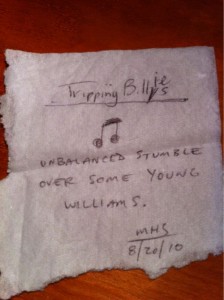 Tripping Billies
UNBALANCED STUMBLE
OVER SOME YOUNG
WILLIAMS.
MHS
8/20/10